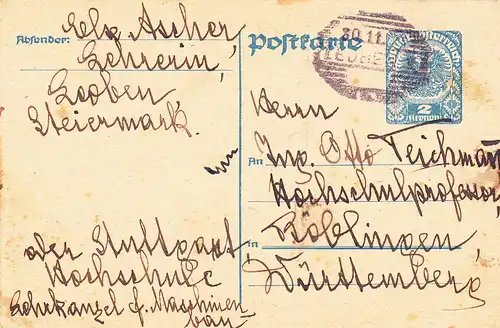 Absender: Elp Ascher
Lehrerin,
Leoben
Steiermark.
Postkarte
30.11.
Deutschösterreich
2
Kronen
Herrn
An Ing. Otto Teichman
Hochschulprofessor,
in Böblingen,
Württemberg
oder Stuttgart,
Hochschule
Lehrkanzel f. Maschinen
bau